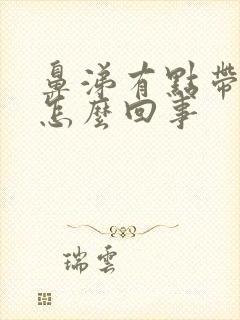 鼻涕有點帶
怎麼回事
瑞雲